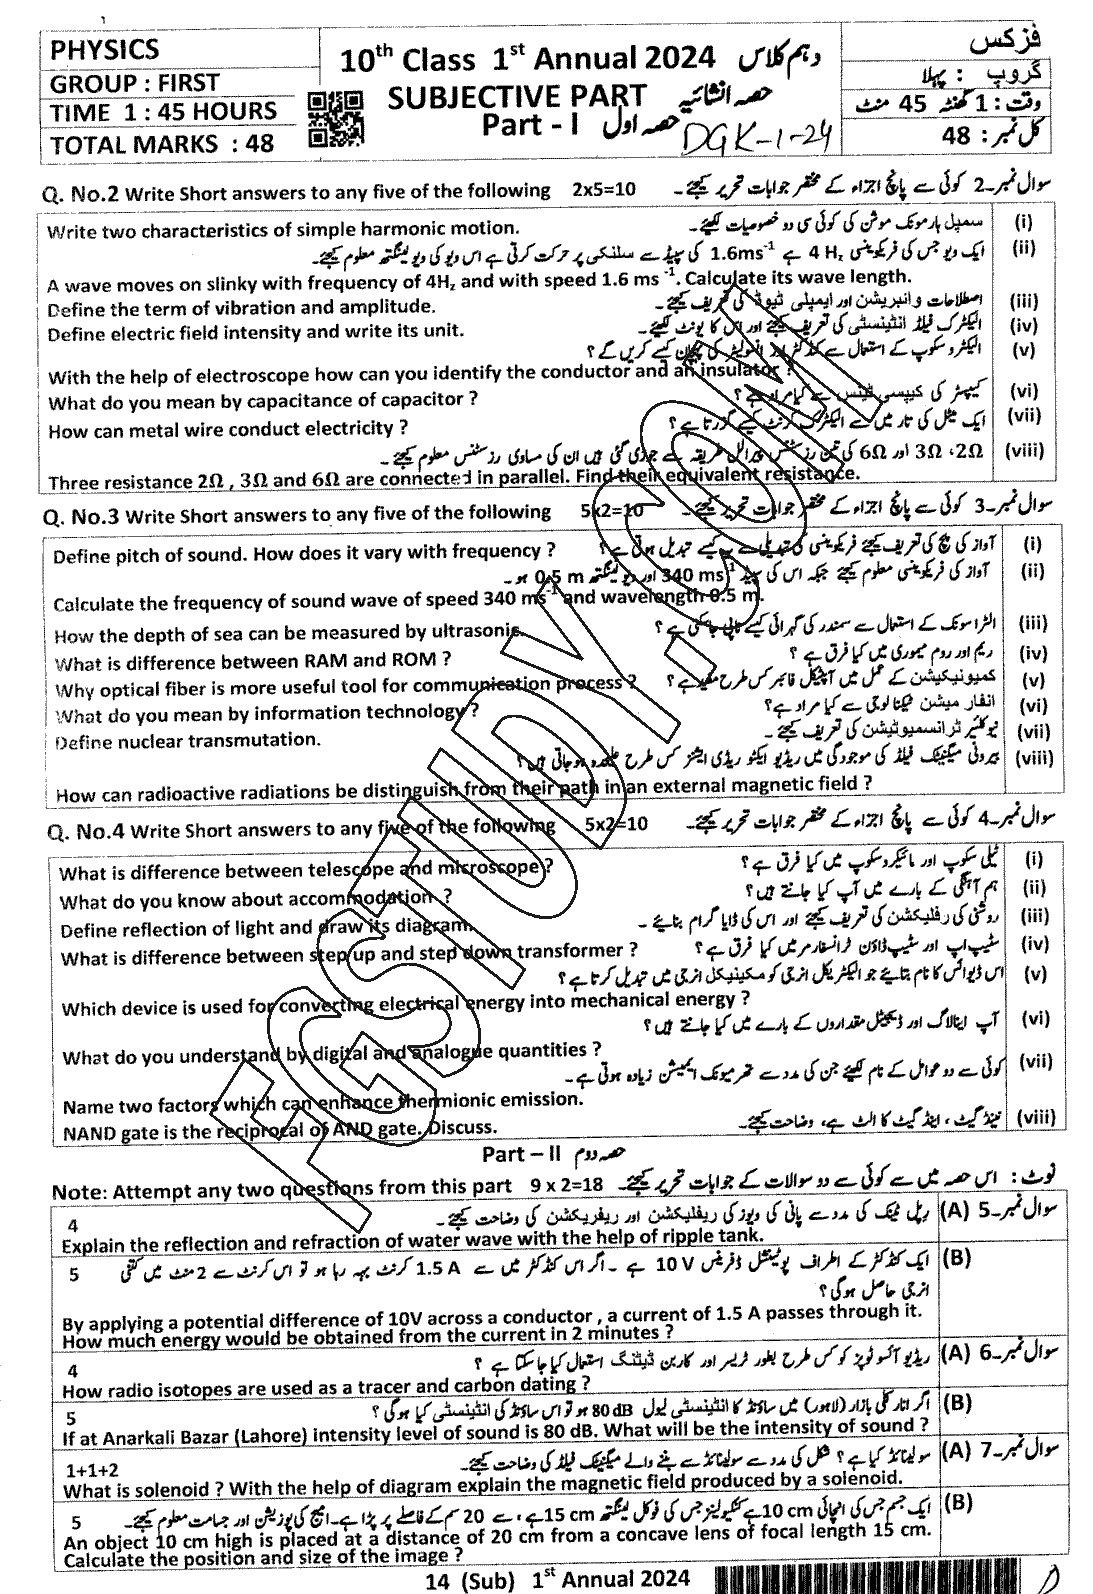 PHYSICS
GROUP : FIRST
TIME 1 : 45 HOURS
TOTAL MARKS : 48
10th Class 1st Annual 2024 دہم کلاس
SUBJECTIVE PART حصہ انشائیہ
Part - I حصہ اول
DGK-1-24
فزکس
گروپ : پہلا
وقت : 1 گھنٹہ 45 منٹ
کل نمبر : 48
Q. No.2 Write Short answers to any five of the following 2x5=10 سوال نمبر-2 کوئی سے پانچ اجزاء کے مختصر جوابات تحریر کیجئے۔
Write two characteristics of simple harmonic motion. سمپل ہارمونک موشن کی کوئی سی دو خصوصیات لکھئے۔ (i)
ایک ویو جس کی فریکوئنسی 4 Hz ہے 1.6ms-1 کی سپیڈ سے سلنکی پر حرکت کرتی ہے اس ویو کی ویولینگتھ معلوم کیجئے۔ (ii)
A wave moves on slinky with frequency of 4Hz and with speed 1.6 ms -1. Calculate its wave length.
Define the term of vibration and amplitude. اصطلاحات وائبریشن اور ایمپلی ٹیوڈ کی تعریف کیجئے۔ (iii)
Define electric field intensity and write its unit. الیکٹرک فیلڈ انٹینسٹی کی تعریف کیجئے اور اس کا یونٹ لکھئے۔ (iv)
الیکٹروسکوپ کے استعمال سے کنڈکٹر اور انسولیٹر کی پہچان کیسے کریں گے ؟ (v)
With the help of electroscope how can you identify the conductor and an insulator ?
What do you mean by capacitance of capacitor ? کپیسٹر کی کپیسی ٹینس سے کیا مراد ہے ؟ (vi)
How can metal wire conduct electricity ? ایک میٹل کی تار میں سے الیکٹرک کرنٹ کیسے گزرتا ہے ؟ (vii)
2Ω، 3Ω اور 6Ω کی تین رزسٹنس پیرالل طریقہ سے جوڑی گئی ہیں ان کی مساوی رزسٹنس معلوم کیجئے۔ (viii)
Three resistance 2Ω , 3Ω and 6Ω are connected in parallel. Find their equivalent resistance.
Q. No.3 Write Short answers to any five of the following 5x2=10 سوال نمبر-3 کوئی سے پانچ اجزاء کے مختصر جوابات تحریر کیجئے۔
Define pitch of sound. How does it vary with frequency ? آواز کی پچ کی تعریف کیجئے فریکوئنسی کی تبدیلی سے یہ کیسے تبدیل ہوتی ہے ؟ (i)
آواز کی فریکوئنسی معلوم کیجئے جبکہ اس کی سپیڈ 340 ms-1 اور ویولینگتھ 0.5 m ہو۔ (ii)
Calculate the frequency of sound wave of speed 340 ms-1 and wavelength 0.5 m.
How the depth of sea can be measured by ultrasonic. الٹراسونک کے استعمال سے سمندر کی گہرائی کیسے ناپی جاسکتی ہے ؟ (iii)
What is difference between RAM and ROM ? ریم اور روم میموری میں کیا فرق ہے ؟ (iv)
Why optical fiber is more useful tool for communication process ? کمیونیکیشن کے عمل میں آپٹیکل فائبر کس طرح مفید ہے ؟ (v)
What do you mean by information technology ? انفارمیشن ٹیکنالوجی سے کیا مراد ہے؟ (vi)
Define nuclear transmutation. نیوکلیئر ٹرانسمیوٹیشن کی تعریف کیجئے۔ (vii)
بیرونی میگنیٹک فیلڈ کی موجودگی میں ریڈیو ایکٹو ریڈی ایشنز کس طرح علیحدہ ہوجاتی ہیں ؟ (viii)
How can radioactive radiations be distinguish from their path in an external magnetic field ?
Q. No.4 Write Short answers to any five of the following 5x2=10 سوال نمبر-4 کوئی سے پانچ اجزاء کے مختصر جوابات تحریر کیجئے۔
What is difference between telescope and microscope ? ٹیلی سکوپ اور مائیکروسکوپ میں کیا فرق ہے ؟ (i)
What do you know about accommodation ? ہم آہنگی کے بارے میں آپ کیا جانتے ہیں؟ (ii)
Define reflection of light and draw its diagram. روشنی کی رفلیکشن کی تعریف کیجئے اور اس کی ڈایا گرام بنائیے۔ (iii)
What is difference between step up and step down transformer ? سٹیپ اپ اور سٹیپ ڈاؤن ٹرانسفارمر میں کیا فرق ہے ؟ (iv)
اس ڈیوائس کا نام بتائیے جو الیکٹریکل انرجی کو مکینیکل انرجی میں تبدیل کرتا ہے؟ (v)
Which device is used for converting electrical energy into mechanical energy ?
آپ اینالاگ اور ڈیجیٹل مقداروں کے بارے میں کیا جانتے ہیں؟ (vi)
What do you understand by digital and analogue quantities ?
کوئی سے دو عوامل کے نام لکھئے جن کی مدد سے تھرمیونک ایمیشن زیادہ ہوتی ہے۔ (vii)
Name two factors which can enhance thermionic emission.
NAND gate is the reciprocal of AND gate. Discuss. نینڈ گیٹ ، اینڈ گیٹ کا الٹ ہے، وضاحت کیجئے۔ (viii)
Part – II حصہ دوم
Note: Attempt any two questions from this part 9 x 2=18 نوٹ : اس حصہ میں سے کوئی سے دو سوالات کے جوابات تحریر کیجئے۔
4 رپل ٹینک کی مدد سے پانی کی ویوز کی ریفلیکشن اور ریفریکشن کی وضاحت کیجئے۔ (A) سوال نمبر-5
Explain the reflection and refraction of water wave with the help of ripple tank.
5 ایک کنڈکٹر کے اطراف پوٹینشل ڈفرینس 10 V ہے ۔ اگر اس کنڈکٹر میں سے 1.5 A کرنٹ بہہ رہا ہو تو اس کرنٹ سے 2 منٹ میں کتنی (B)
انرجی حاصل ہوگی ؟
By applying a potential difference of 10V across a conductor , a current of 1.5 A passes through it.
How much energy would be obtained from the current in 2 minutes ?
4 ریڈیو آئسوٹوپز کو کس طرح بطور ٹریسر اور کاربن ڈیٹنگ استعمال کیا جاسکتا ہے ؟ (A) سوال نمبر-6
How radio isotopes are used as a tracer and carbon dating ?
5 اگر انارکلی بازار (لاہور) میں ساؤنڈ کا انٹینسٹی لیول 80 dB ہو تو اس ساؤنڈ کی انٹینسٹی کیا ہوگی ؟ (B)
If at Anarkali Bazar (Lahore) intensity level of sound is 80 dB. What will be the intensity of sound ?
1+1+2 سولینائڈ کیا ہے؟ شکل کی مدد سے سولینائڈ سے بننے والے میگنیٹک فیلڈ کی وضاحت کیجئے۔ (A) سوال نمبر-7
What is solenoid ? With the help of diagram explain the magnetic field produced by a solenoid.
5 ایک جسم جس کی اونچائی 10 cm ہے کنکیولینز جس کی فوکل لینگتھ 15 cm ہے، سے 20 سم کے فاصلے پر پڑا ہے۔ امیج کی پوزیشن اور جسامت معلوم کیجئے۔ (B)
An object 10 cm high is placed at a distance of 20 cm from a concave lens of focal length 15 cm.
Calculate the position and size of the image ?
14 (Sub) 1st Annual 2024
FGSTUDY.COM